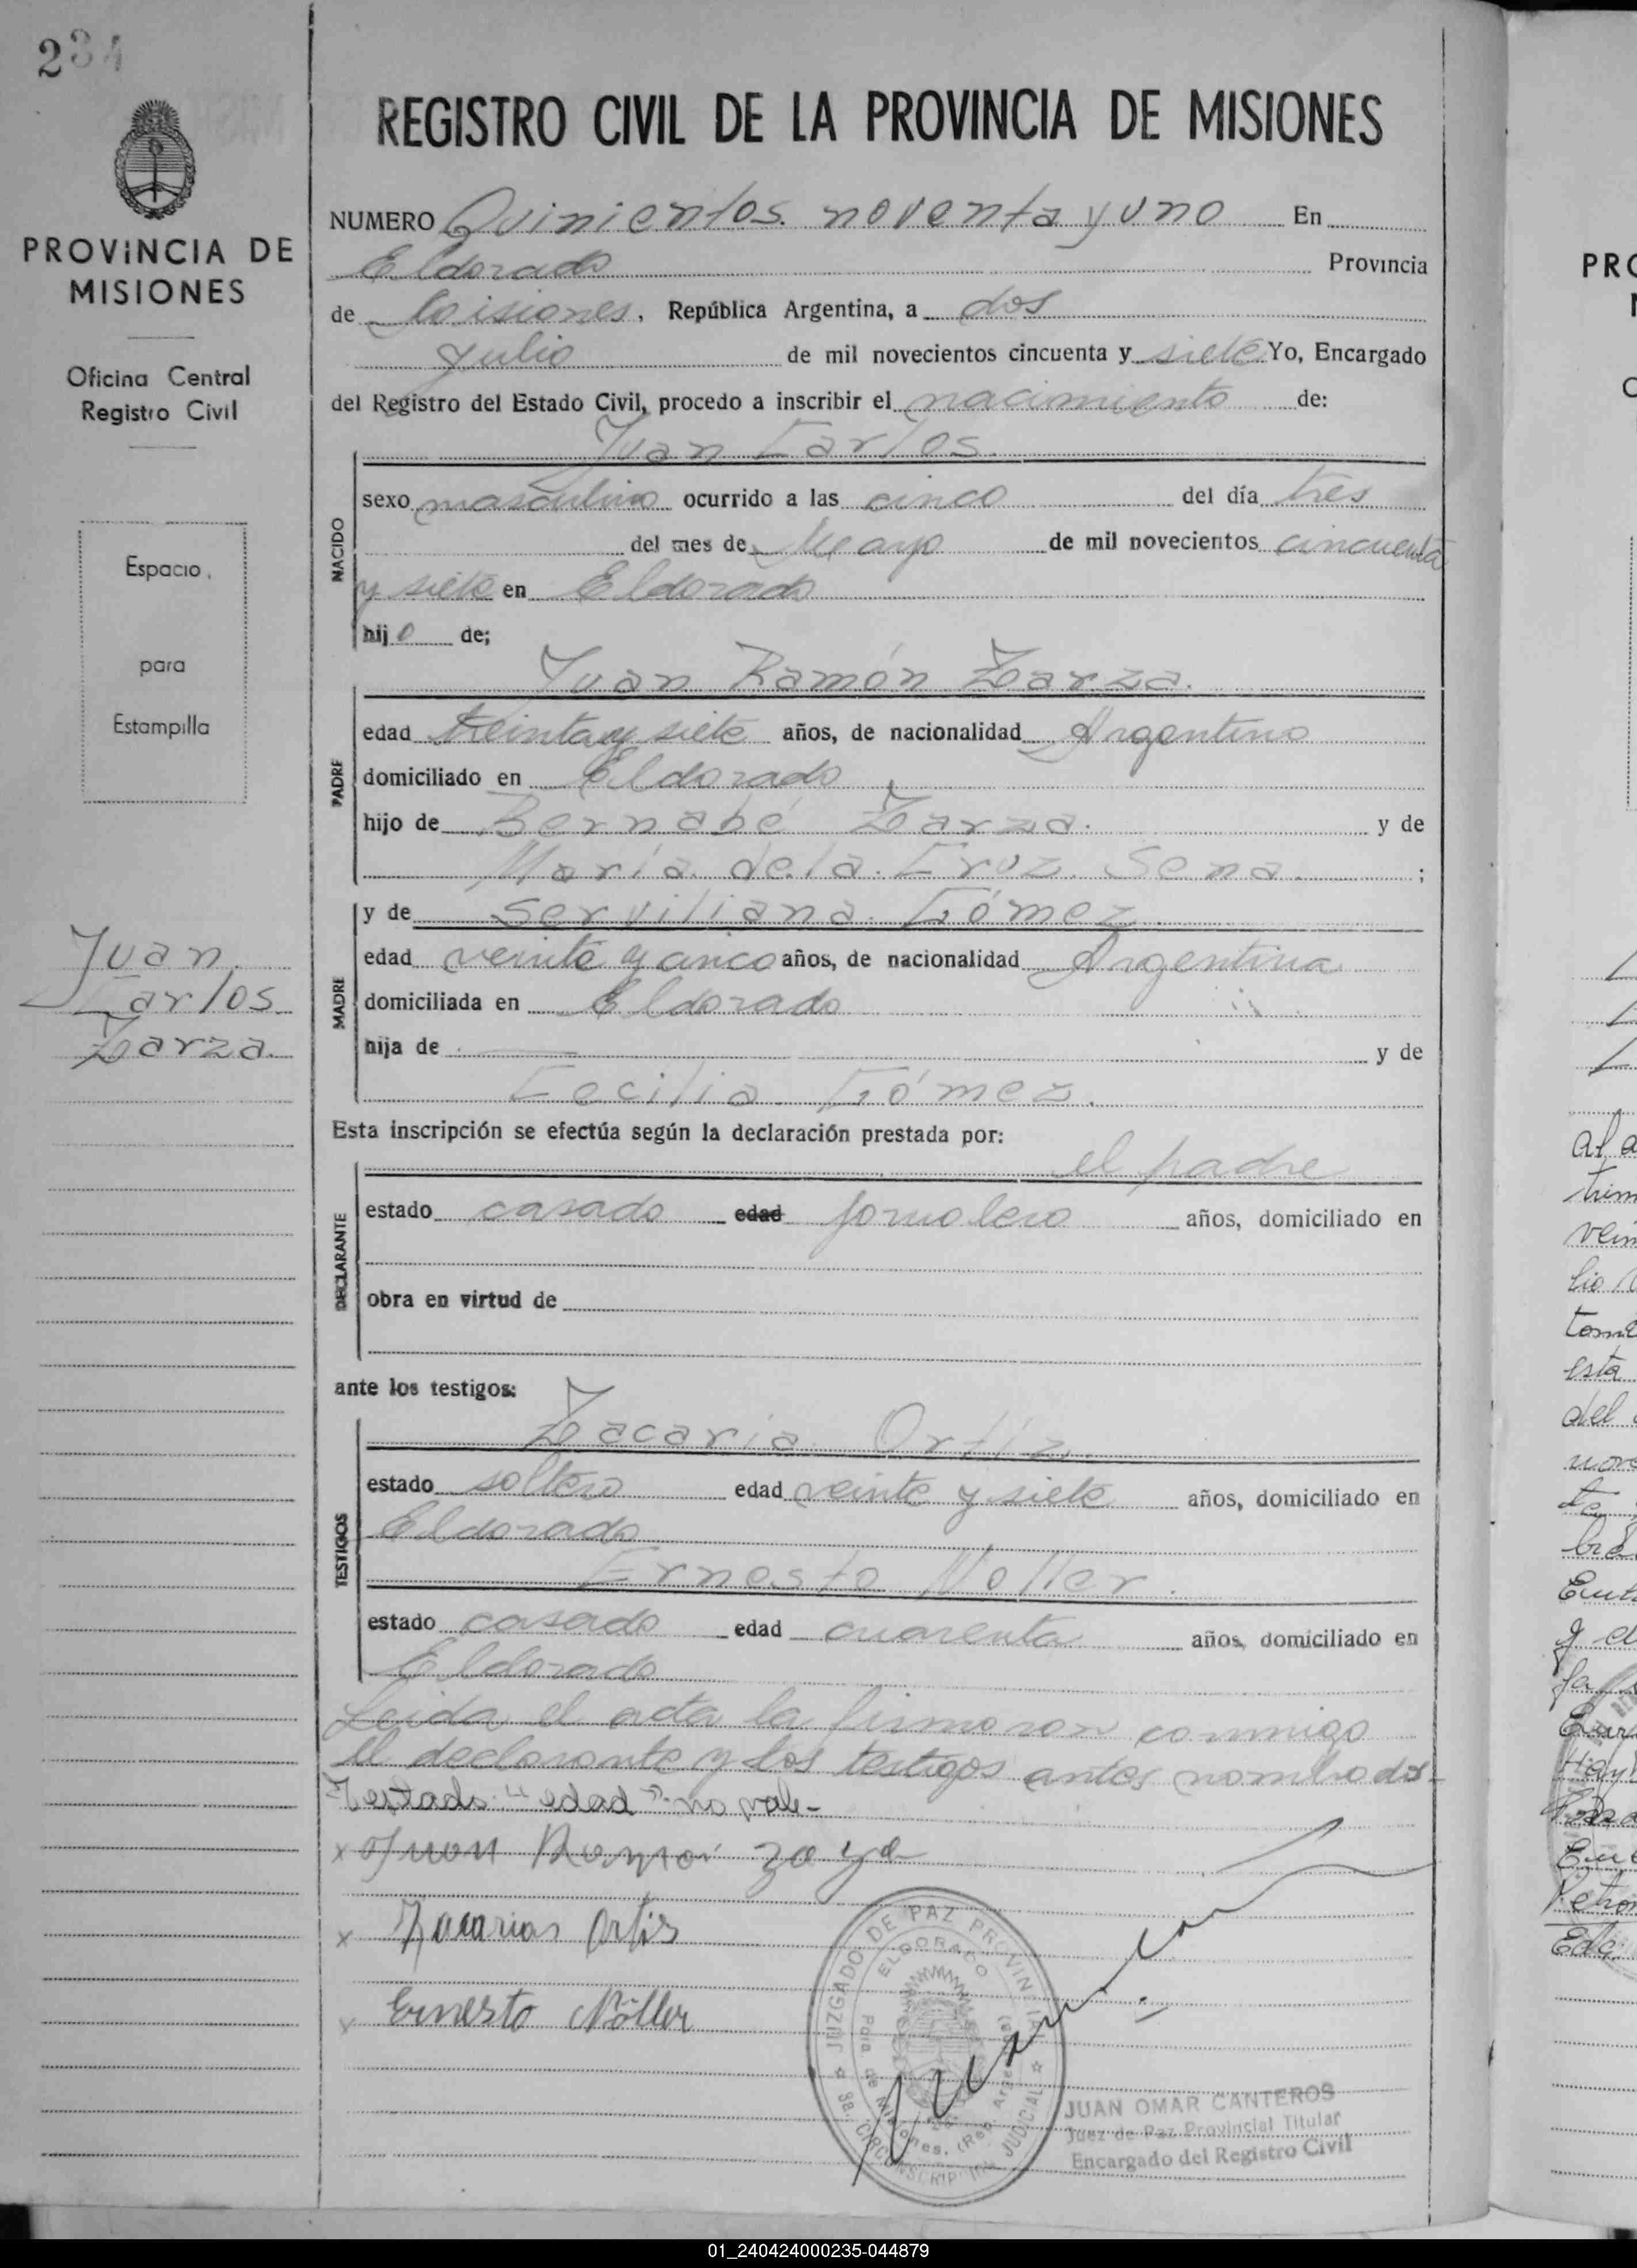 234
PROVINCIA DE
MISIONES
Oficina Central
Registro Civil
Espacio
para
Estampilla
Juan
Carlos
Zarza
REGISTRO CIVIL DE LA PROVINCIA DE MISIONES
NUMERO Quinientos noventa y uno En
Eldorado Provincia
de Misiones, República Argentina, a dos
Julio de mil novecientos cincuenta y siete Yo, Encargado
del Registro del Estado Civil, procedo a inscribir el nacimiento de:
Juan Carlos.
NACIDO
sexo masculino ocurrido a las cinco del día tres
del mes de Mayo de mil novecientos cincuenta
y siete en Eldorado
hijo de;
Juan Ramón Zarza.
PADRE
edad treinta y siete años, de nacionalidad Argentino
domiciliado en Eldorado
hijo de Bernabé Zarza. y de
María de la Cruz Sena. ;
y de Serviliana Gómez
MADRE
edad veinte y cinco años, de nacionalidad Argentina
domiciliada en Eldorado
hija de — y de
Cecilia Gómez.
Esta inscripción se efectúa según la declaración prestada por:
el padre
DECLARANTE
estado casado edad jornalero años, domiciliado en
obra en virtud de
ante los testigos:
Zacaria Ortíz.
TESTIGOS
estado soltero edad veinte y siete años, domiciliado en
Eldorado
Ernesto Noller.
estado casado edad cuarenta años, domiciliado en
Eldorado
Leida el acta la firmaron conmigo
el declarante y los testigos antes nombrados-
Testado: "edad": no vale-
x Juan Ramón
x Zacarias Ortis
x Ernesto Nöller
JUZGADO DE PAZ PROVINCIAL
ELDORADO
JUDICIAL
JUAN OMAR CANTEROS
Juez de Paz Provincial Titular
Encargado del Registro Civil
PRO
al a
del
01_240424000235-044879